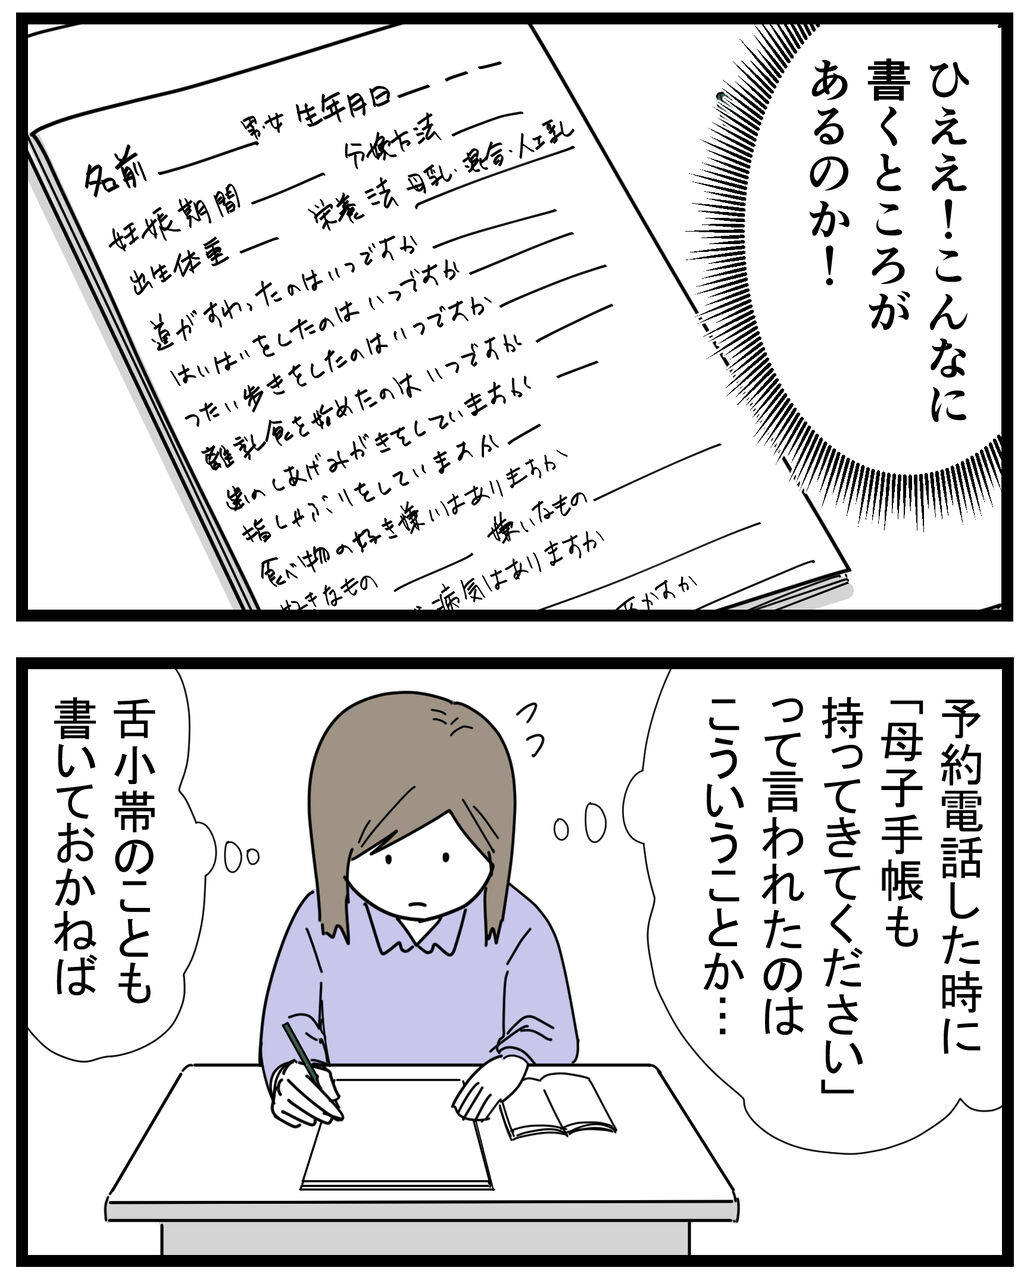 ひええ！こんなに
書くところが
あるのか！
名前 男・女 生年月日
妊娠期間 分娩方法
出生体重 栄養法 母乳・混合・人工乳
首がすわったのはいつですか
はいはいをしたのはいつですか
つたい歩きをしたのはいつですか
離乳食を始めたのはいつですか
歯のしあげみがきをしていますか
指しゃぶりをしていますか
食べ物の好き嫌いはありますか
好きなもの 嫌いなもの
病気はありますか
予約電話した時に
「母子手帳も
持ってきてください」
って言われたのは
こういうことか…
舌小帯のことも
書いておかねば